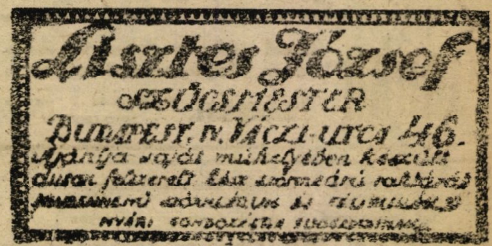 Lisztes József
SZŰCSMESTER
BUDAPEST, IV. VÁCZI-UTCA 46.
Ajánlja saját műhelyében készült
dusan felszerelt kész szőrmeárú raktárát
és
nyári